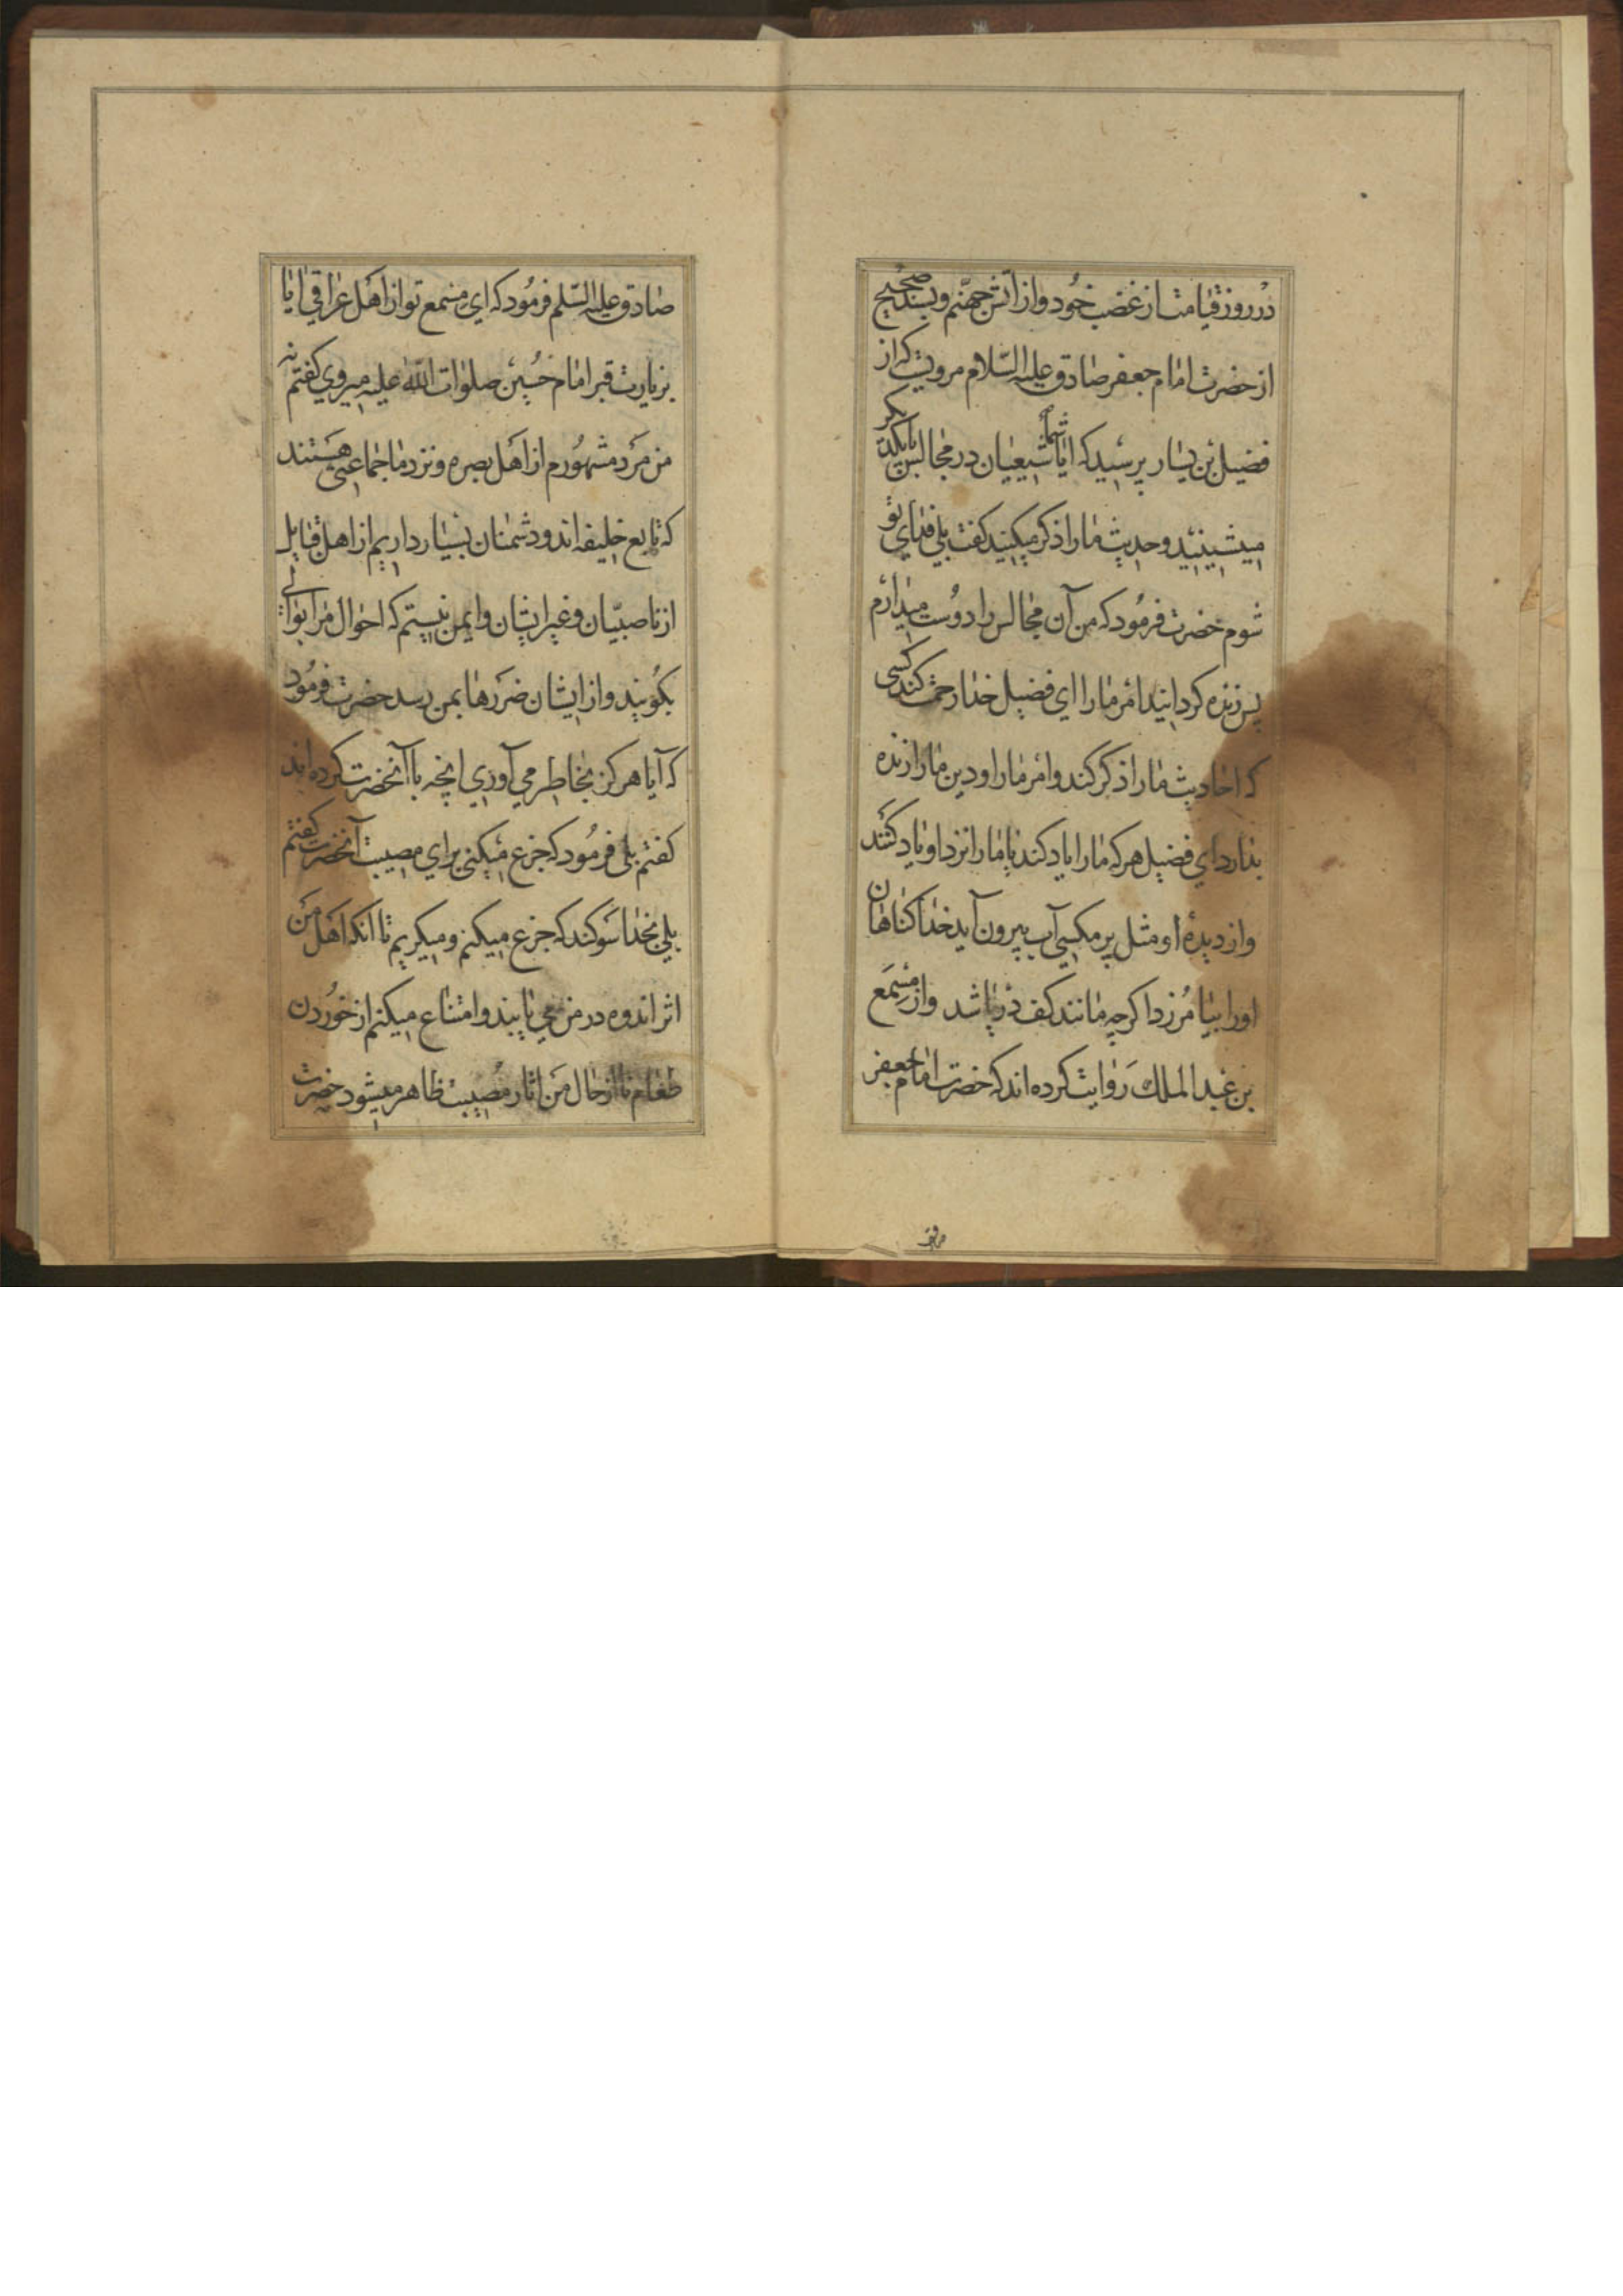 در روز قیامت از غضب خود و از اتش جهنّم و بسند صحیح
از حضرت امام جعفر صادق علیه السّلام مرویست که از
فضیل بن یسار پرسید که ایا شما شیعیان در مجالس با یکدیکر
میشینید و حدیث ما را ذکر میکنید کفت بلی فدای تو
شوم حضرت فرمود که من آن مجالس را دوست میدارم
پس زنده کردانید امر ما را ای فضیل خدا رحمت کند کسی
که احادیث ما را ذکر کند و امر ما را و دین ما را زنده
بدارد ای فضیل هر که ما را یاد کند یا ما را نزد او یاد کنند
و از دیدهٔ او مثل پر مکسی آب بیرون آید خدا کناهان
او را بیامرزد اکرچه مانند کف دریا باشد و از مسمع
بن عبد الملک روایت کرده اند که حضرت امام جعفر
صادق
صادق علیه السّلم فرمود که ای مسمع تو از اهل عراقی ایا
بزیارت قبر امام حسین صلوات الله علیه میروی کفتم نه
من مرد مشهورم از اهل بصره و نزد ما جماعتی هستند
که تابع خلیفه اند و دشمنان بسیار داریم از اهل قبایل
از ناصبیّان و غیر ایشان و ایمن نیستم که احوال مرا بوالی
بکویند و از ایشان ضررها بمن رسد حضرت فرمود
که آیا هرکز بخاطر می آوری انچه با آنحضرت کرده اند
کفتم بلی فرمود که جزع میکنی برای مصیبت آنحضرت کفتم
بلی بخدا سوکند که جزع میکنم و میکریم تا آنکه اهل من
اثر اندوه در من می یابند و امتناع میکنم از خوردن
طعام تا از حال من اثار مصیبت ظاهر میشود حضرت